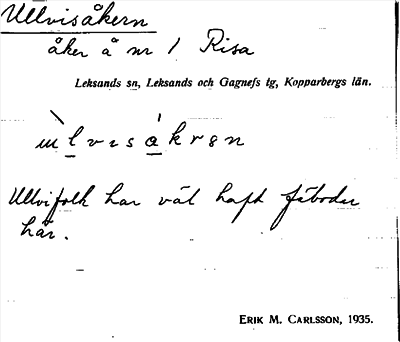 Ullvisåkern
åker å nr 1 Risa
Leksands sn, Leksands och Gagnefs tg, Kopparbergs län.
Ullvifolk har väl haft fäbodar
här.
ERIK M. CARLSSON, 1935.